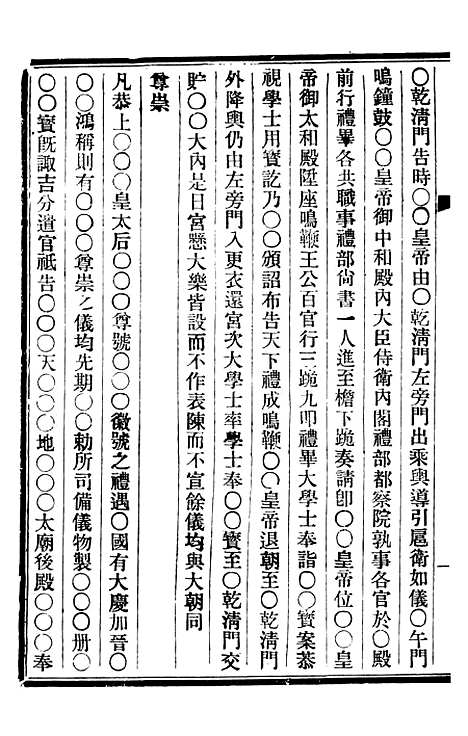 〇乾淸門告時〇〇皇帝由〇乾淸門左旁門出乘輿導引扈衛如儀〇午門
鳴鐘鼓〇〇皇帝御中和殿內大臣侍衛內閣禮部都察院執事各官於〇殿
前行禮畢各共職事禮部尙書一人進至檐下跪奏請卽〇〇皇帝位〇〇皇
帝御太和殿陞座鳴鞭王公百官行三跪九叩禮畢大學士奉詣〇〇寳案恭
視學士用寳訖乃〇〇頒詔布告天下禮成鳴鞭〇〇皇帝退朝至〇乾淸門
外降輿仍由左旁門入更衣還宮次大學士率學士奉〇〇寳至〇乾淸門交
貯〇〇大內是日宮懸大樂皆設而不作表陳而不宣餘儀均與大朝同
尊崇
凡恭上〇〇〇皇太后〇〇〇尊號〇〇〇徽號之禮遇〇國有大慶加晉〇
〇〇鴻稱則有〇〇〇尊崇之儀均先期〇〇勅所司備儀物製〇〇〇册〇
〇〇寳旣諏吉分遣官祇告〇〇〇天〇〇〇地〇〇〇太廟後殿〇〇〇奉